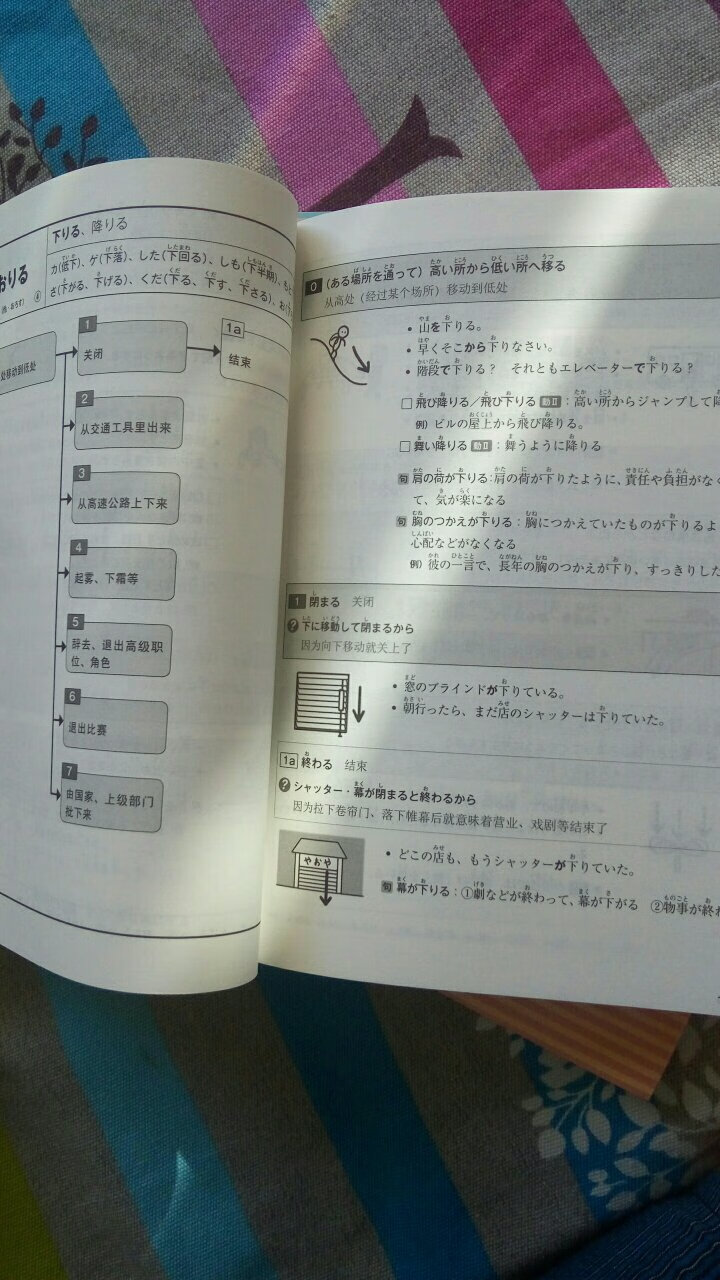 おりる
下りる、降りる
カ(低下)、ゲ(下落)、した(下回る)、しも(下半期)、もと
さ(下がる、下げる)、くだ(下る、下す、下さる)、お(
処移动到低处
1
关闭
1a
结束
2
从交通工具里出来
3
从高速公路上下来
4
起雾、下霜等
5
辞去、退出高级职
位、角色
6
退出比赛
7
由国家、上级部门
批下来
0 (ある場所を通って)高い所から低い所へ移る
从高处(经过某个场所)移动到低处
• 山を下りる。
• 早くそこから下りなさい。
• 階段で下りる? それともエレベーターで下りる?
□ 飛び降りる/飛び下りる 動Ⅱ:高い所からジャンプして降
例)ビルの屋上から飛び降りる。
□ 舞い降りる 動Ⅱ:舞うように降りる
句 肩の荷が下りる:肩の荷が下りたように、責任や負担がなく
て、気が楽になる
句 胸のつかえが下りる:胸につかえていたものが下りるよ
心配などがなくなる
例)彼の一言で、長年の胸のつかえが下り、すっきりした
1 閉まる 关闭
? 下に移動して閉まるから
因为向下移动就关上了
• 窓のブラインドが下りている。
• 朝行ったら、まだ店のシャッターは下りていた。
1a 終わる 结束
? シャッター・幕が閉まると終わるから
因为拉下卷帘门、落下帷幕后就意味着营业、戏剧等结束了
やおや
• どこの店も、もうシャッターが下りていた。
句 幕が下りる:①劇などが終わって、幕が下がる ②物事が終わ